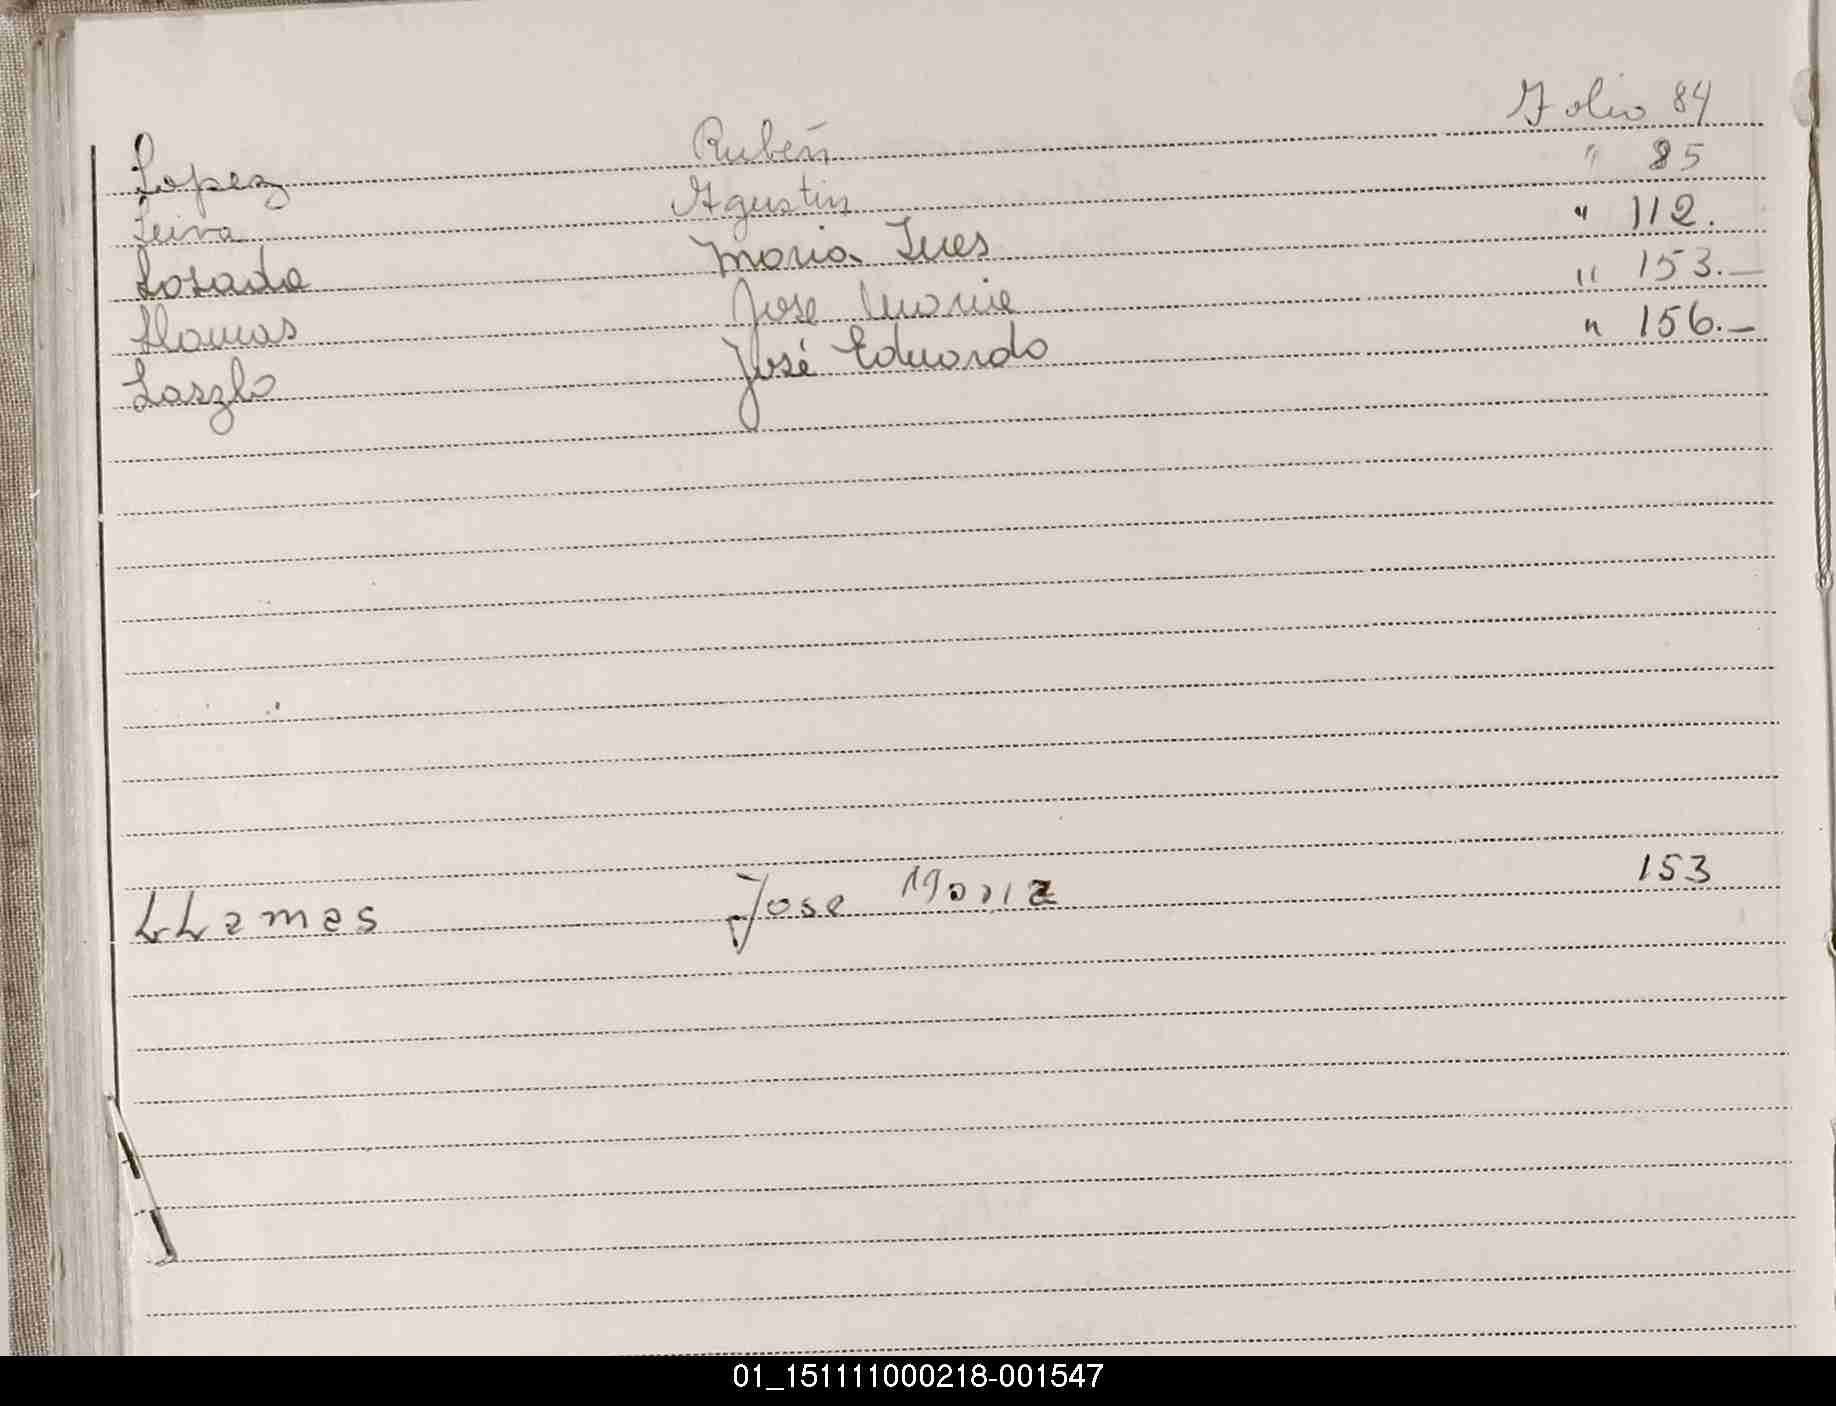 Lopez Rubén Folio 84
Leiva Agustin " 85
Losada Maria Ines " 112.
Llamas Jose Maria " 153.—
Laszlo José Eduardo " 156.—
LLamas Jose Maria 153
01_151111000218-001547